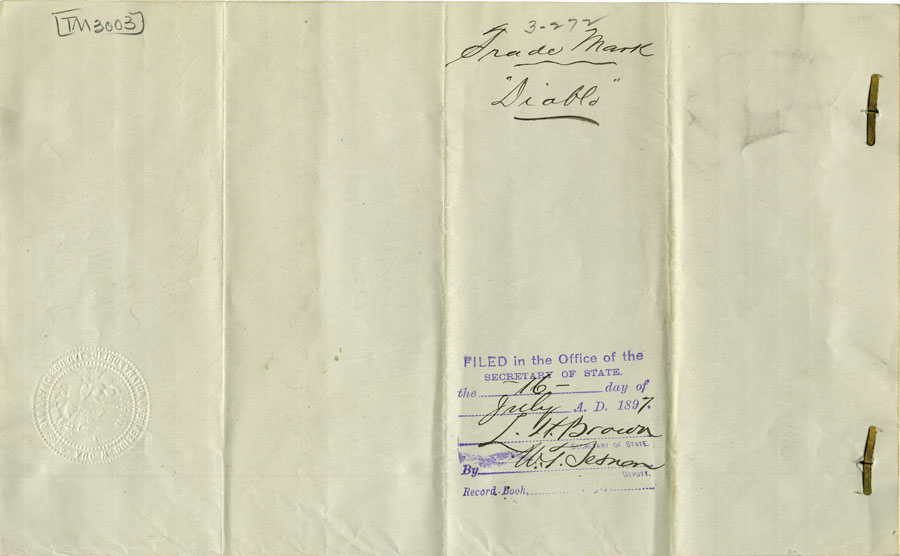 TM3003
3-272
Trade Mark
"Diablo"
FILED in the Office of the
SECRETARY OF STATE.
the -16- day of
July A. D. 1897.
L. H. Brown
SECRETARY OF STATE.
By W. T.
DEPUTY.
Record Book,